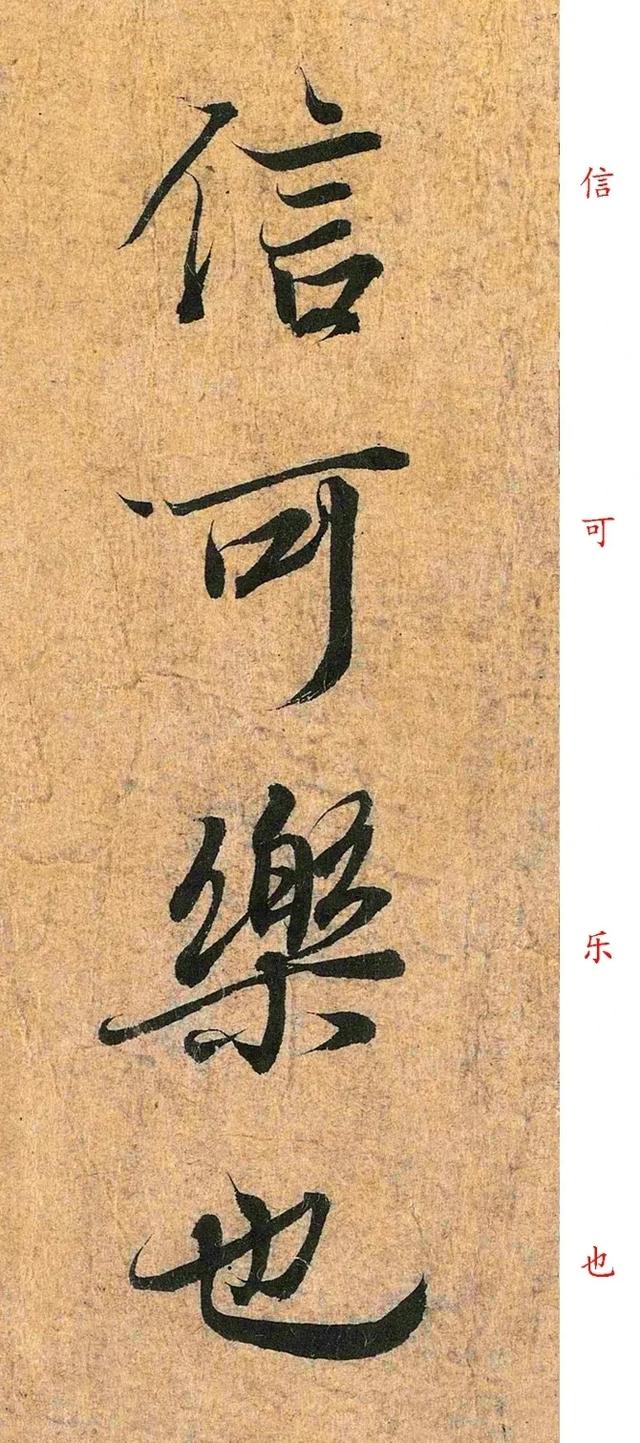 信可樂也
信
可
乐
也